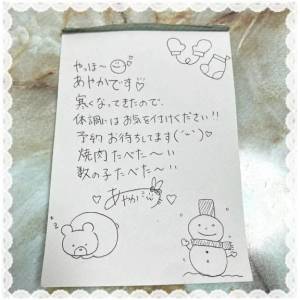 やっほ〜
あやかです♡
寒くなってきたので、
体調にはお気を付けください!!
予約 お待ちしてます(´ー`)♡
焼肉たべた〜い
数の子たべた〜い
♡あやか♡